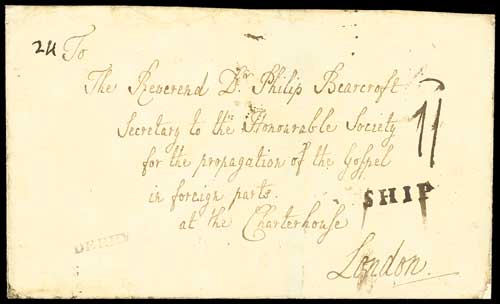 24 To
The Reverend Dr. Philip Bearcroft
Secretary to the Honourable Society
for the propagation of the Gospel
in foreign parts.
at the Charterhouse
SHIP
DERBY
London.